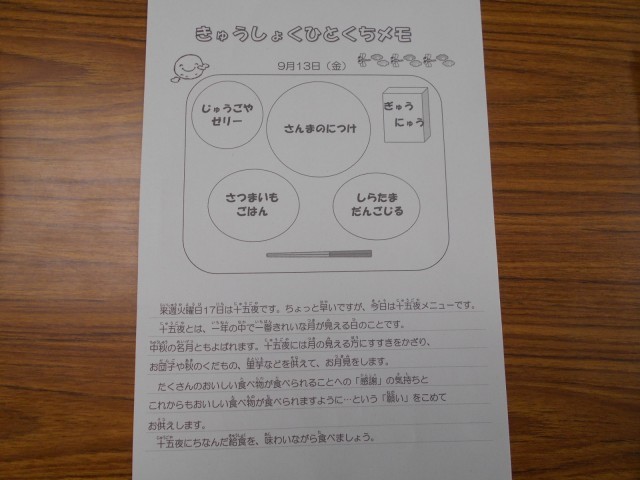 きゅうしょくひとくちメモ
9月13日（金）
じゅうごや
ゼリー
さんまのにつけ
ぎゅう
にゅう
さつまいも
ごはん
しらたま
だんごじる
来週火曜日17日は十五夜です。ちょっと早いですが、今日は十五夜メニューです。
十五夜とは、一年の中で一番きれいな月が見える日のことです。
中秋の名月ともよばれます。十五夜には月の見える方にすすきをかざり、
お団子や秋のくだもの、里芋などを供えて、お月見をします。
たくさんのおいしい食べ物が食べられることへの「感謝」の気持ちと
これからもおいしい食べ物が食べられますように…という「願い」をこめて
お供えします。
十五夜にちなんだ給食を、味わいながら食べましょう。